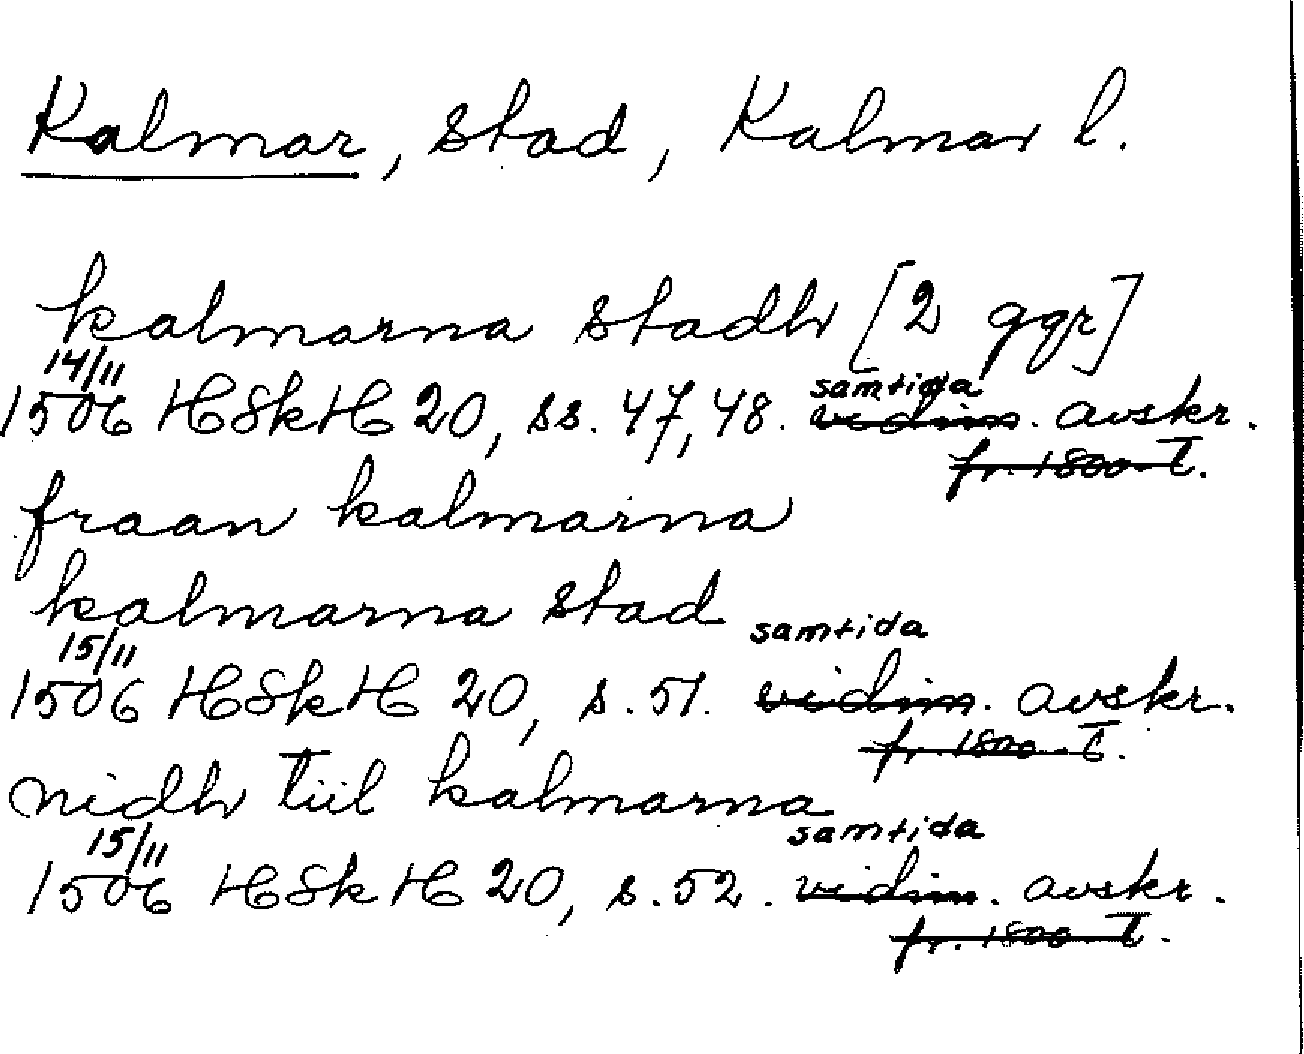 Kalmar, stad, Kalmar l.
kalmarna stadh [2 ggr]
14/11
samtida
1506 HSkH 20, ss. 47, 48. vidim. avskr.
fr. 1800-t.
fraan kalmarna
kalmarna stad
15/11
samtida
1506 HSkH 20, s. 51. vidim. avskr.
fr. 1800-t.
nidh tiil kalmarna
15/11
samtida
1506 HSkH 20, s. 52. vidim. avskr.
fr. 1800-t.